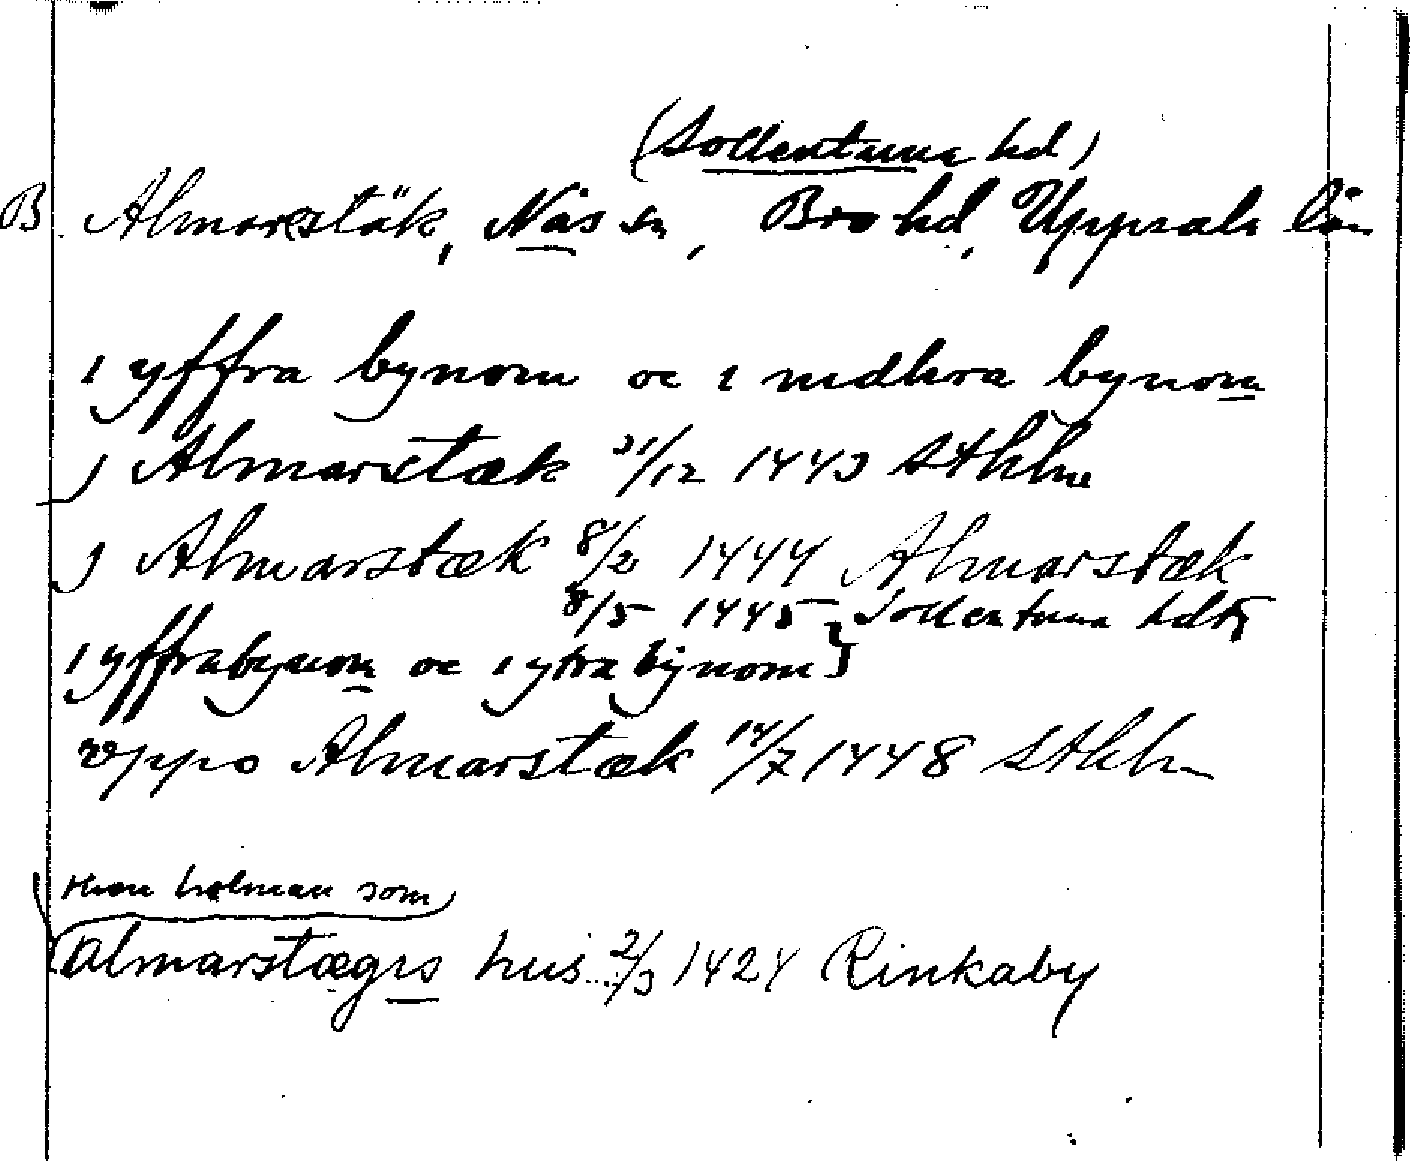 (Sollentuna hd)
B. Almarestäk, Näs sn, Bro hd, Uppsala län
i yffra bynom oc i nidhra bynom
j Almarstæk 31/12 1443 Sthlm
j Almarstæk 8/2 1444 Almarstæk
8/5 1445 Sollentuna hdt
i yffrabynom oc i ytra bynom}
vppo Almarstæk 14/7 1448 Sthlm
holman som
Almarstægis hus 2/3 1424 Rinkaby